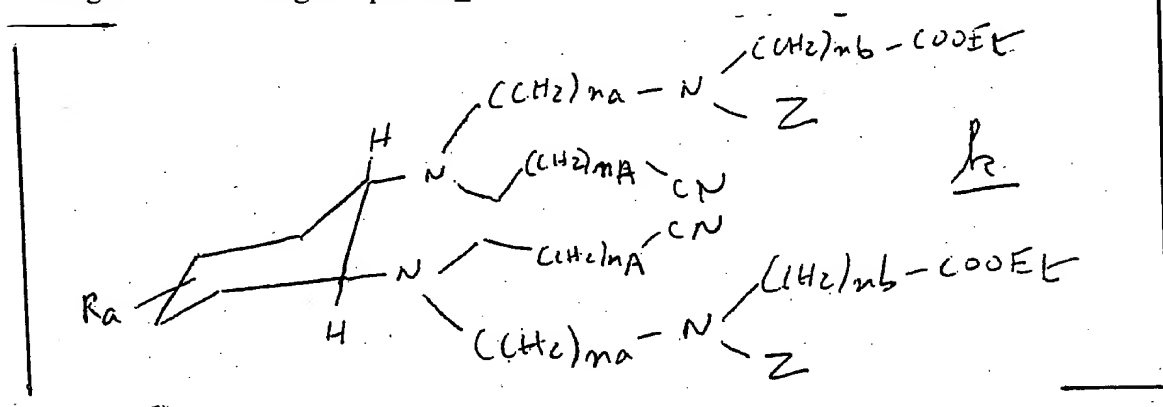 ((CH2)nb-COOEt
((CH2)na-N
Z
H
N
((CH2)nA
CN
k
CN
N
((CH2)nA
((CH2)nb-COOEt
Ra
H
((CH2)na-N
Z